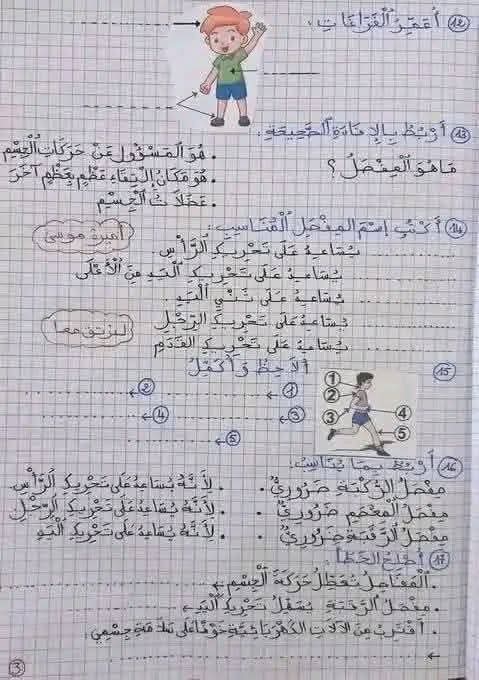 12 أُعَمِّرُ الْفَرَاغَاتِ:
13 أَرْبُطُ بِالْإِفَادَةِ الصَّحِيحَةِ:
مَا هُوَ الْمِفْصَلُ؟
. هُوَ الْمَسْؤُولُ عَنْ حَرَكَاتِ الْجِسْمِ
. هُوَ مَكَانُ الْتِقَاءِ عَظْمٍ بِعَظْمٍ آخَرَ
. عَضَلَاتُ الْجِسْمِ
14 أَكْتُبُ اسْمَ الْمِفْصَلِ الْمُنَاسِبِ:
أميرة موسى
يُسَاعِدُ عَلَى تَحْرِيكِ الرَّأْسِ.
يُسَاعِدُ عَلَى تَحْرِيكِ الْيَدِ مِنَ الْأَعْلَى
يُسَاعِدُ عَلَى ثَنْيِ الْيَدِ.
يُسَاعِدُ عَلَى تَحْرِيكِ الرِّجْلِ
يُسَاعِدُ عَلَى تَحْرِيكِ الْقَدَمِ
لنرتق معا
15 أُلَاحِظُ وَأُكْمِلُ
1 2
3 4
5
1
2
3
4
5
16 أَرْبُطُ بِمَا يُنَاسِبُ:
مِفْصَلُ الرُّكْبَةِ ضَرُورِيٌّ . . لِأَنَّهُ يُسَاعِدُ عَلَى تَحْرِيكِ الرَّأْسِ.
مِفْصَلُ الْمِعْصَمِ ضَرُورِيٌّ . . لِأَنَّهُ يُسَاعِدُ عَلَى تَحْرِيكِ الرِّجْلِ
مِفْصَلُ الرَّقَبَةِ ضَرُورِيٌّ . . لِأَنَّهُ يُسَاعِدُ عَلَى تَحْرِيكِ الْيَدِ
17 أُصْلِحُ الْخَطَأَ:
. الْمَفَاصِلُ تُعَطِّلُ حَرَكَةَ الْجِسْمِ
. مِفْصَلُ الرَّقَبَةِ يُسَهِّلُ تَحْرِيكَ الْيَدِ
. أَقْتَرِبُ مِنَ الْآلَاتِ الْكَهْرَبَائِيَّةِ خَوْفًا عَلَى سَلَامَةِ جِسْمِي:
3